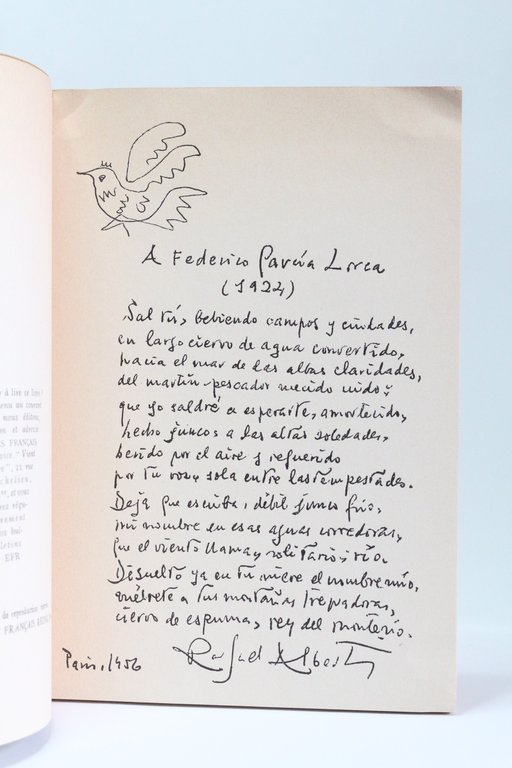 A Federico García Lorca
(1924)
Sal tú, bebiendo campos y ciudades,
en largo ciervo de agua convertido,
hacia el mar de las albas claridades,
del martín-pescador mecido nido;
que yo saldré a esperarte, amortecido,
hecho junco, a las altas soledades,
herido por el aire y requerido
por tu voz, sola entre las tempestades.
Deja que escriba, débil junco frío,
mi nombre en esas aguas corredoras,
que el viento llama, solitario, río.
Disuelto ya en tu nieve el nombre mío,
vuélvete a tus montañas trepadoras,
ciervo de espuma, rey del monterío.
París, 1956
Rafael Alberti
à live ce livre
nous éditon,
S FRANÇAIS
vice "Vient
21 rue
et vous
EFR
de reproduction
FRANÇAIS